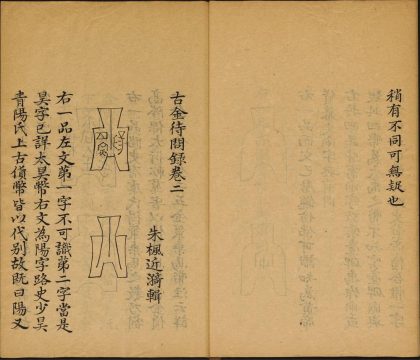 稍有不同可無疑也
古金待問錄卷二
朱楓近漪輯
右一品左文第一字不可識第二字當是
昊字已詳太昊幣右文為陽字路史少昊
青陽氏上古貨幣皆以代別故既曰陽又